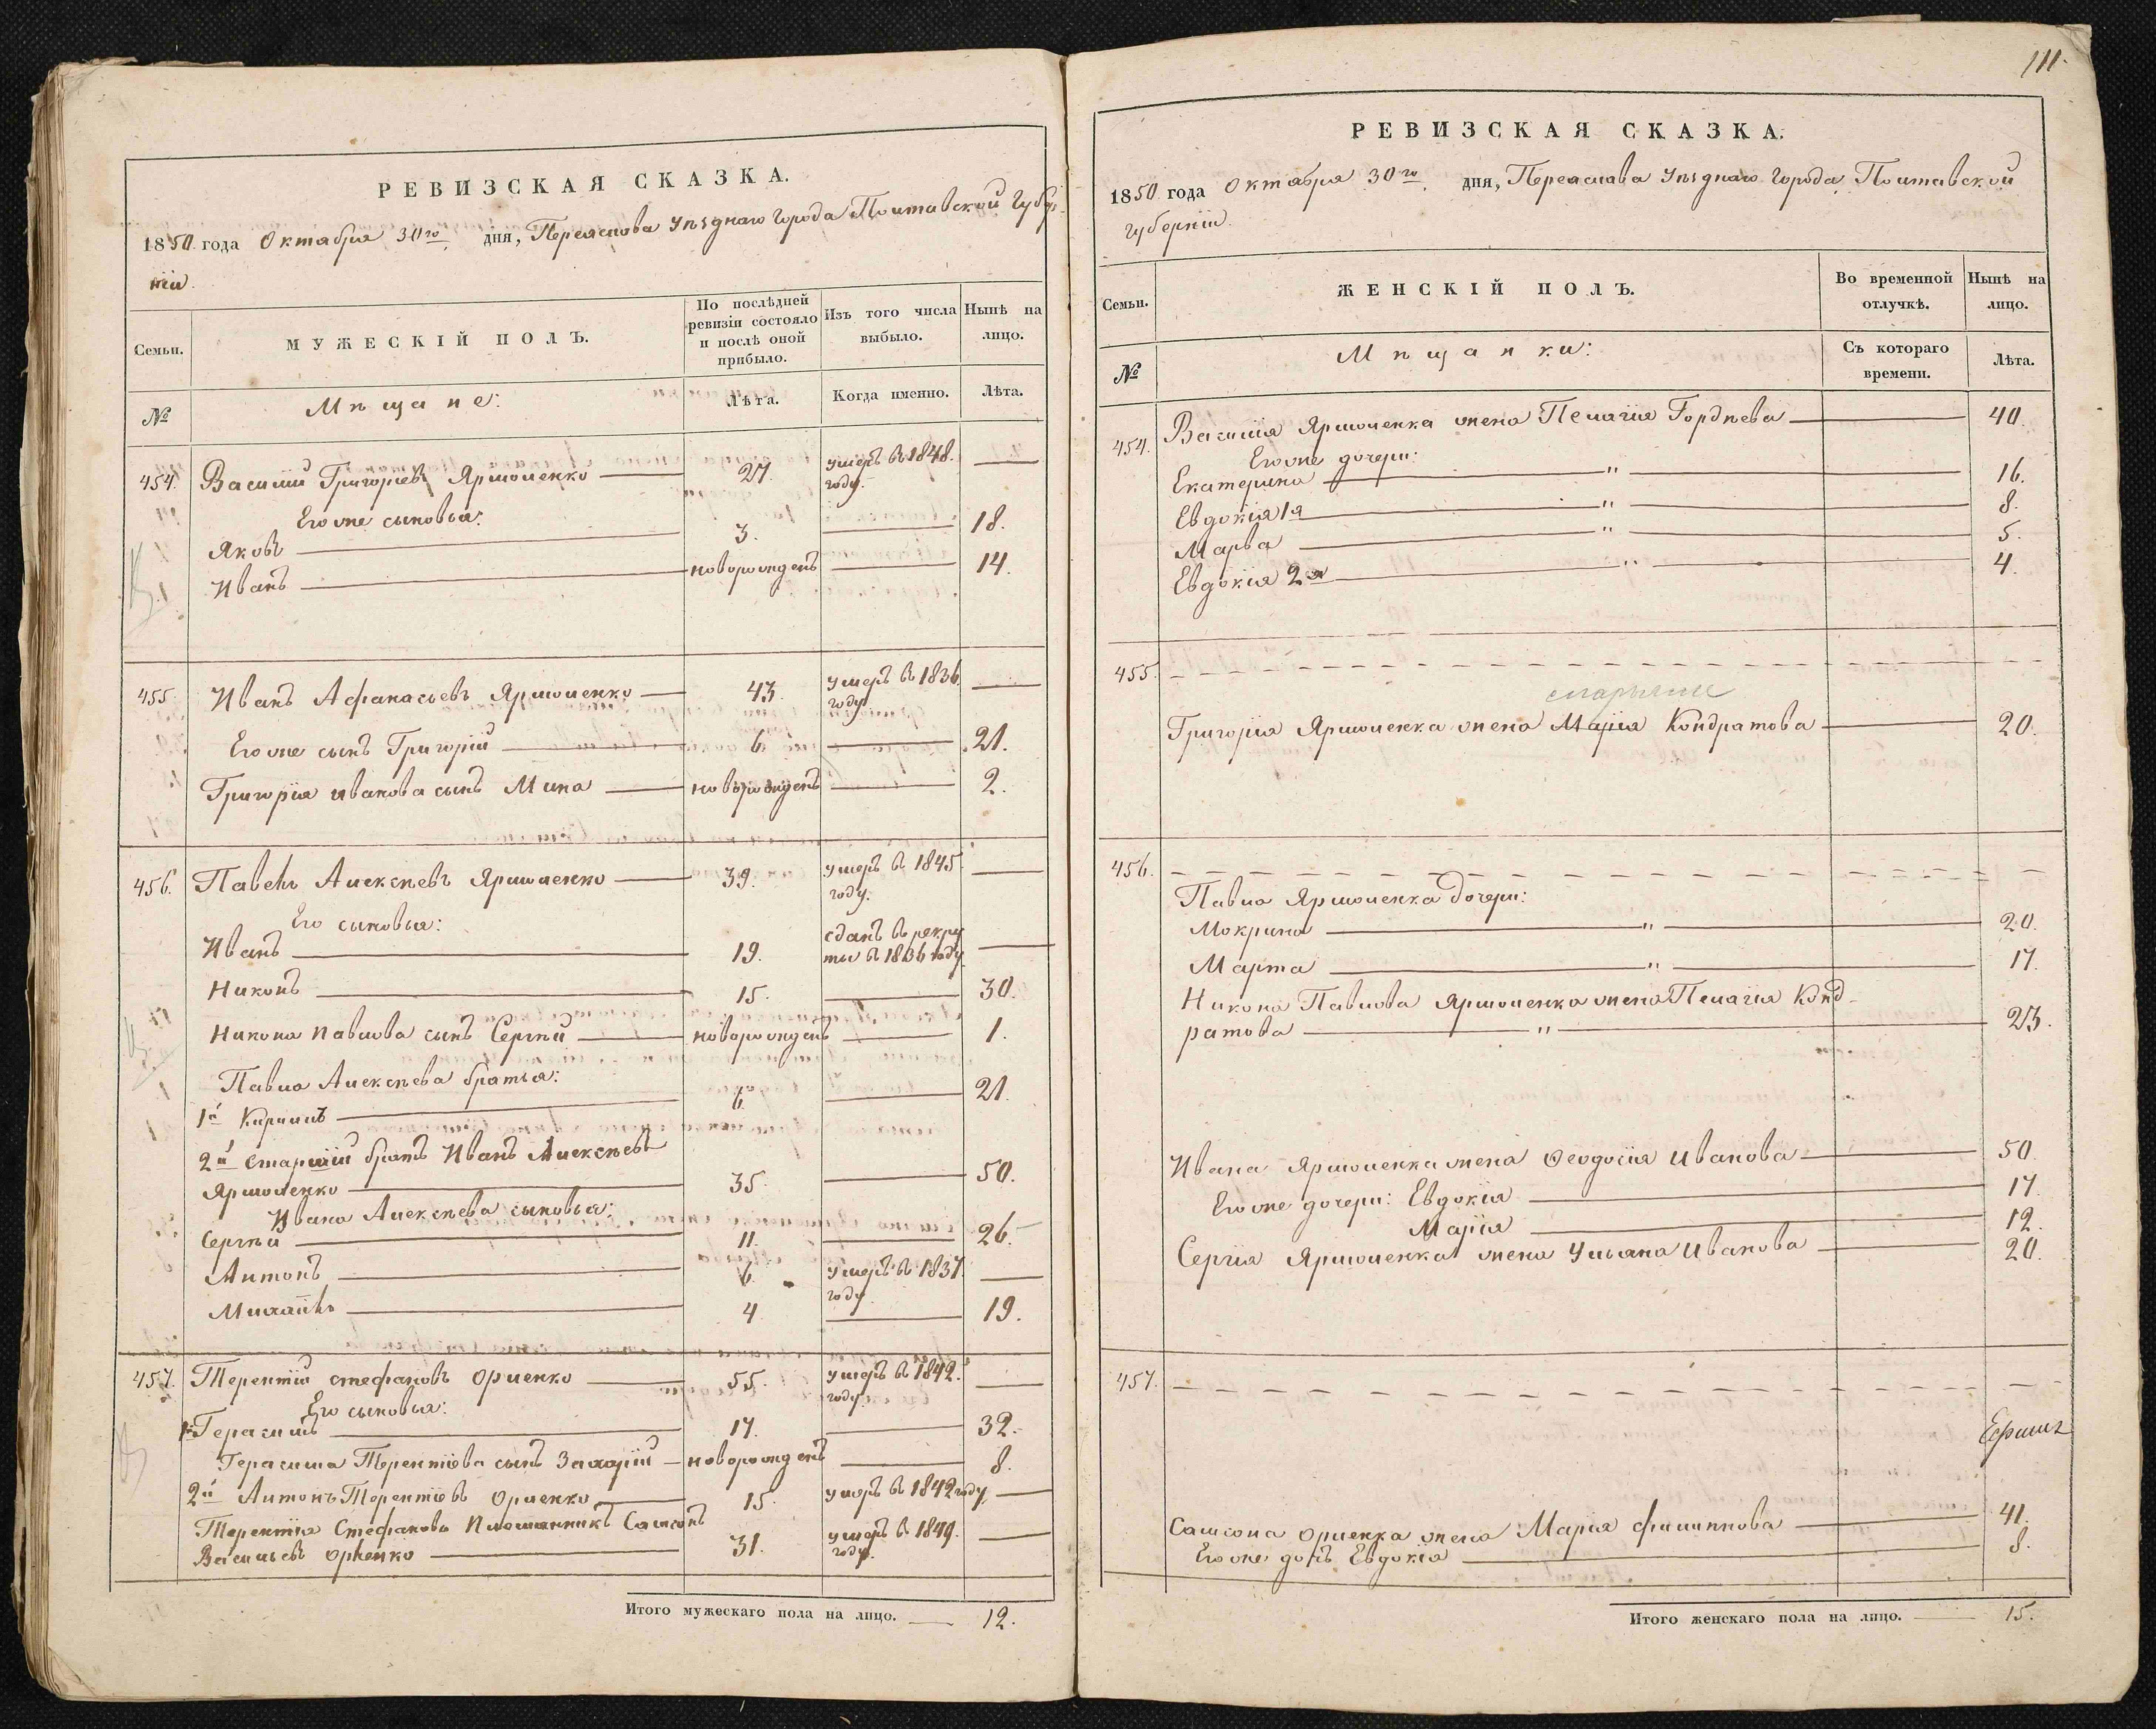 РЕВИЗСКАЯ СКАЗКА.
1850 года Октября 30го дня, Переяслова Уѣзднаго города Полтавской Губер-
ніи.
Семьи.
МУЖЕСКІЙ ПОЛЪ.
По послѣдней ревизіи состояло и послѣ оной прибыло.
Изъ того числа выбыло.
Нынѣ на лицо.
№
Мѣщане:
Лѣта.
Когда именно.
Лѣта.
454. Василій Григорьевъ Ярмоленко 27. умеръ въ 1848. году.
Его же сыновья:
Яковъ 3. 18.
Иванъ новорожденъ 14.
455. Иванъ Афанасьевъ Ярмоленко 43. умеръ въ 1836 году
Его же сынъ Григорій 6. 21.
Григорія Иванова сынъ Мина новорожденъ 2.
456. Павелъ Алексѣевъ Ярмоленко 39. умеръ въ 1845 году.
Его сыновья:
Иванъ 19. сданъ въ рекру
ты въ 1836 году
Никонъ 15. 30.
Никона Павлова сынъ Сергѣй новорожденъ 1.
Павла Алексѣева братья:
1й Кирилъ 6. 21.
2й старшій братъ Иванъ Алексѣевъ
Ярмоленко 35. 50.
Ивана Алексѣева сыновья:
Сергѣй 11. 26.
Антонъ 6. умеръ въ 1837. году
Михаилъ 4 19.
457. Терентій Стефановъ Орленко 55. умеръ въ 1842. году.
Его сыновья:
1. Герасимъ 17. 32.
Герасима Терентіева сынъ Захарій новорожденъ 8.
2й Антонъ Терентіевъ Орленко 15. умеръ въ 1842 году
Терентія Стефанова Племянникъ Самсонъ
Васильевъ Орленко 31. умеръ въ 1849. году.
Итого мужескаго пола на лицо. 12.
111.
РЕВИЗСКАЯ СКАЗКА.
1850 года Октября 30го дня, Переяслава Уѣзднаго Города Полтавской
губерніи.
Семьи.
ЖЕНСКІЙ ПОЛЪ.
Во временной отлучкѣ.
Нынѣ на лицо.
№
Мѣщанки:
Съ котораго времени.
Лѣта.
454. Василія Ярмоленка жена Пелагія Гордѣева 40.
Его же дочери:
Екатерина " 16.
Евдокія 1я " 8.
Марѳа " 5.
Евдокія 2я " 4.
455.
Григорія Ярмоленка жена Марія Кондратова 20.
456.
Павла Ярмоленка дочери:
Мокрина " 20.
Марта " 17.
Никона Павлова Ярмоленка жена Пелагія Конд-
ратова " 23.
Ивана Ярмоленка жена Ѳеодосія Иванова 50.
Его же дочери: Евдокія 17
Марія 12.
Сергія Ярмоленка жена Ульяна Иванова 20.
457.
Самсона Орленка жена Марія Филиппова 41.
Его же дочь Евдокія 8.
Итого женскаго пола на лицо. 15.